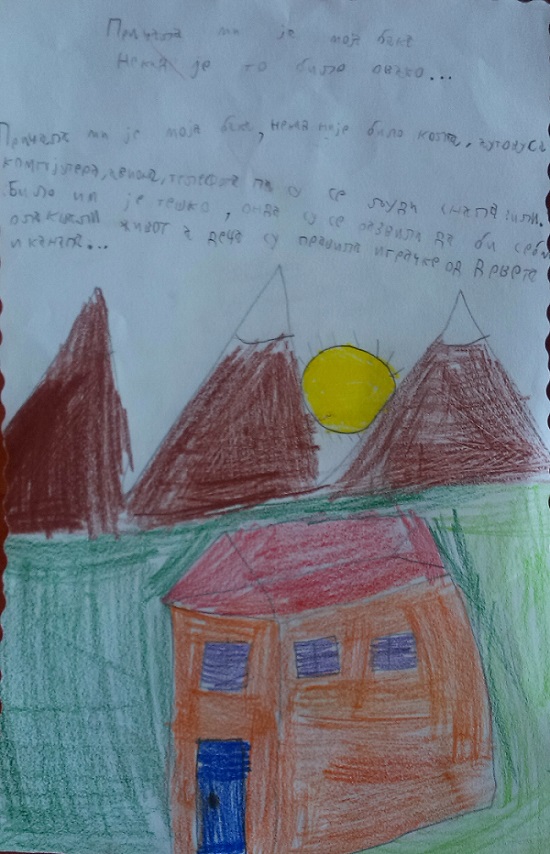 Причала ми је моја бака
Некад је то било овако...
Причала ми је моја бака, некад није било кола, аутобуса
компјутера, авиона, телефона па су се људи сналазили.
Било им је тешко, онда су се развила да би себи
олакшали живот а деца су правила играчке од дрвета
и канапа...